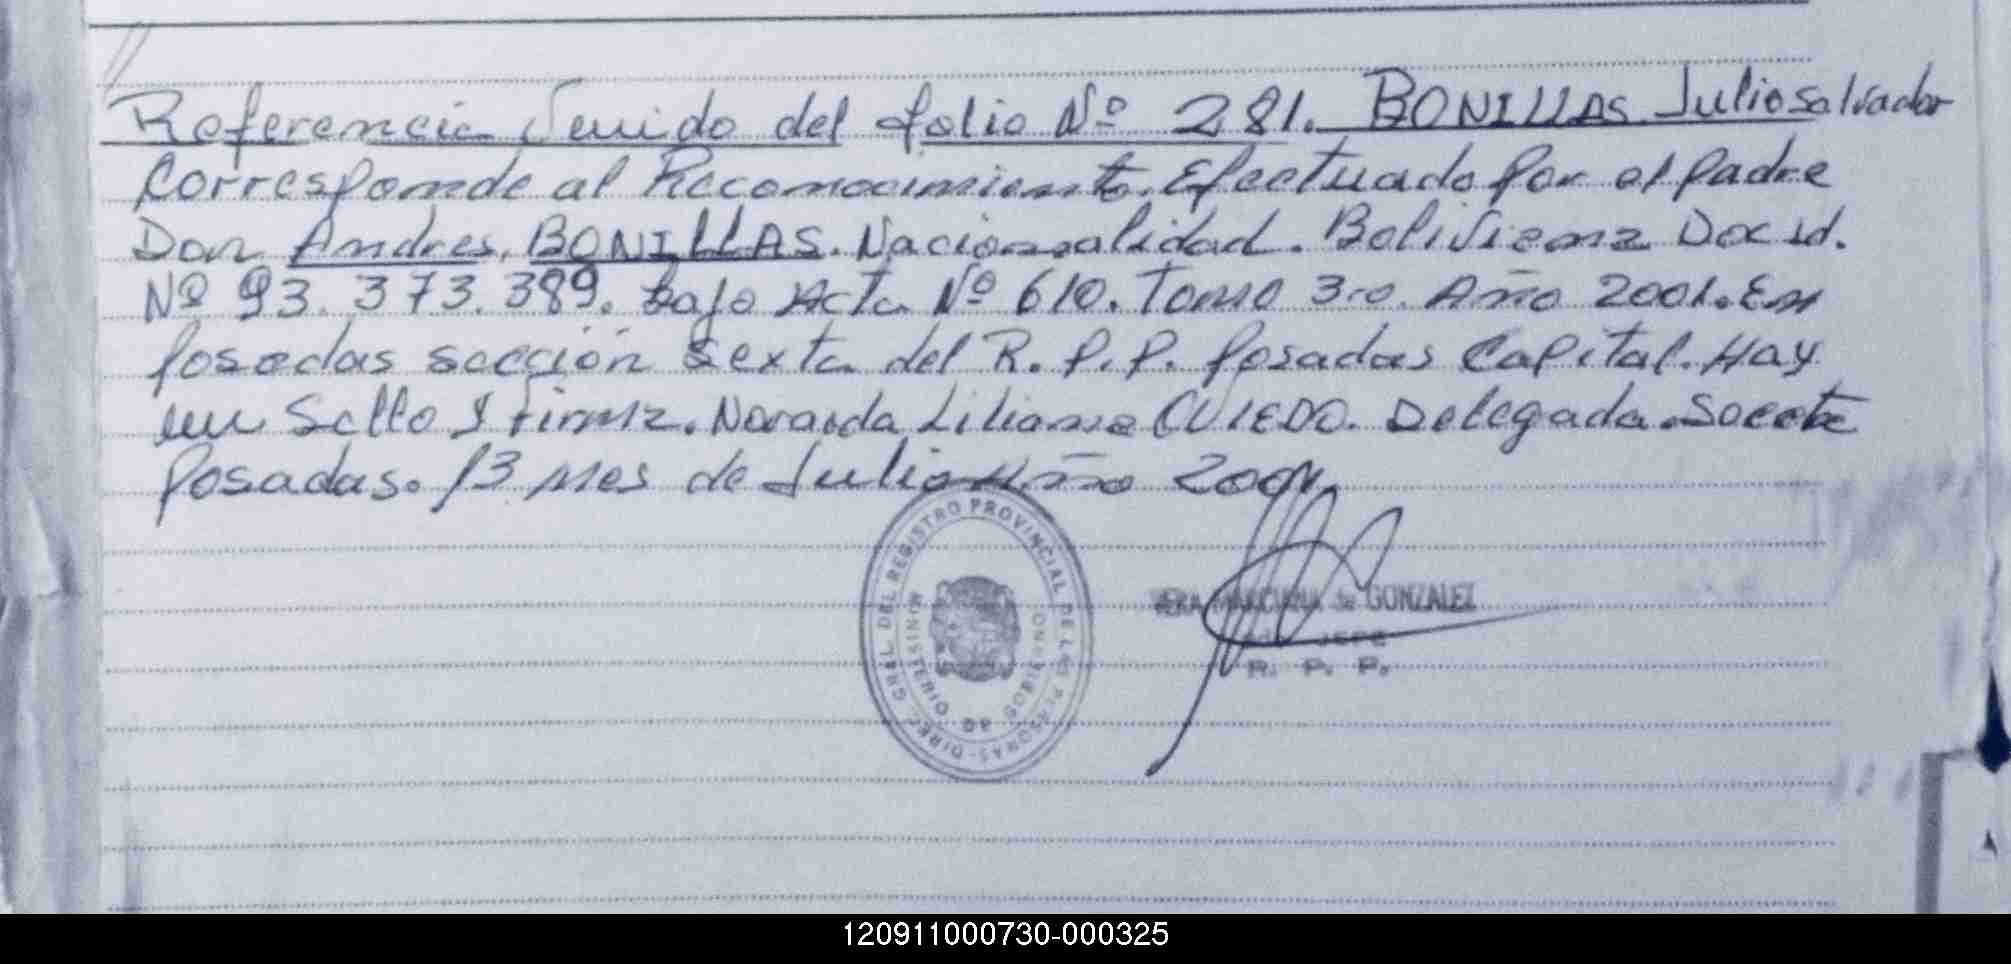 Referencia Seuido del folio Nº 281. BONILLAS Julio salvador
Corresponde al Reconocimiento. Efectuado por el padre
Don Andres. BONILLAS. Nacionalidad. Boliviana Doc id.
Nº 93.373.389. bajo Acta Nº 610. Tomo 3ro. Año 2001. En
posadas sección sexta del R.P.P. posadas Capital. Hay
un Sello y firma. Liliana OVIEDO. Delegada.
posadas. 13 Mes de Julio Año 2001.
DIREC. GRAL. DEL REGISTRO PROVINCIAL DE LAS PERSONAS
MINISTERIO DE GOBIERNO
de GONZALEZ
JEFE
R. P. P.
120911000730-000325